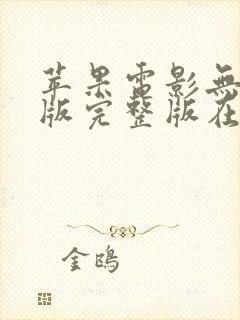 苹果雷影無
版完整版在
金鴎